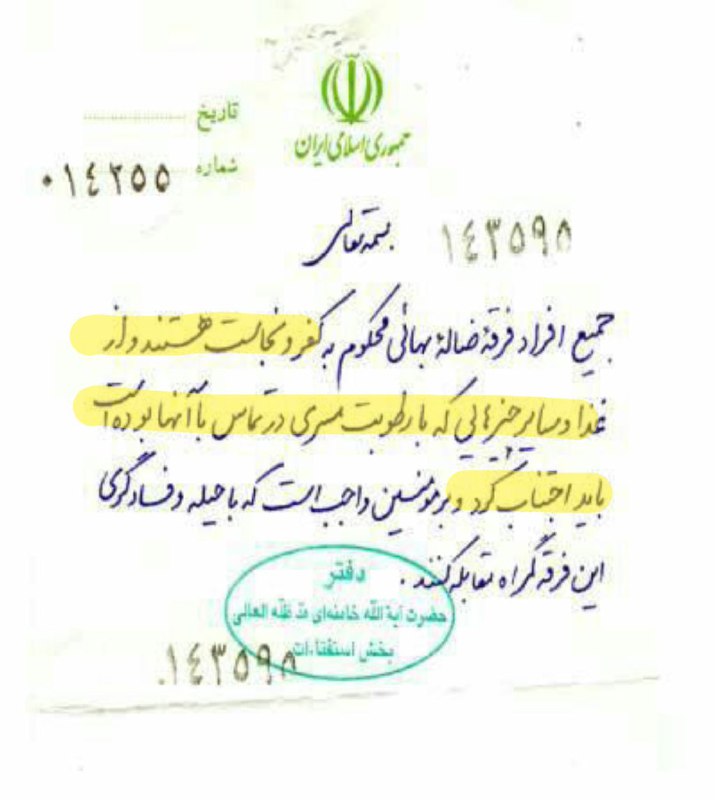 جمهوری اسلامی ایران
تاریخ
شماره ۰۱۴۲۵۵
۱۴۳۵۹۵
بسمه تعالی
جمیع افراد فرقهٔ ضالهٔ بهائی محکوم به کفر و نجاست هستند و از
غذا و سایر چیزهایی که با رطوبت مسری در تماس با آنها بوده است
باید اجتناب کرد و بر مومنین واجب است که با حیله و فسادگری
این فرقه گمراه مقابله کنند.
دفتر
حضرت آیة الله خامنه‌ای مد ظله العالی
بخش استفتاءات
۱۴۳۵۹۵